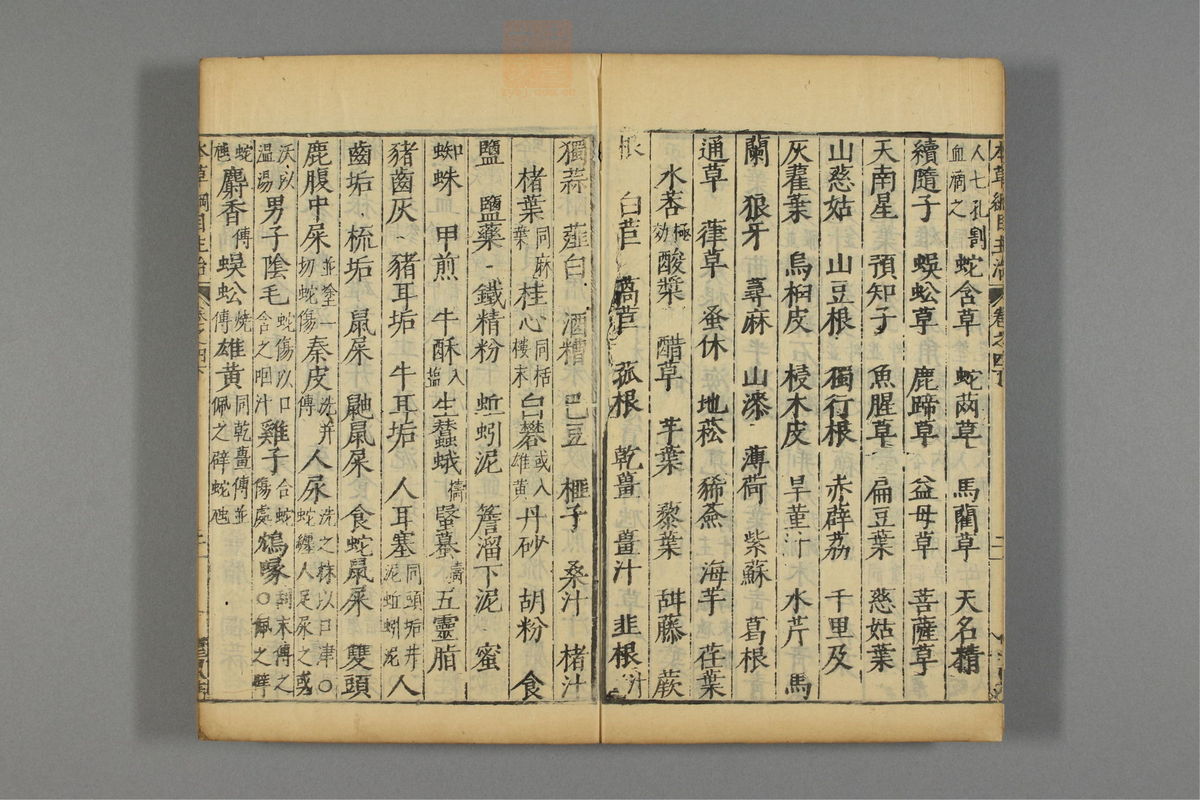 人七孔割
血滴之
蛇含草 蛇䓖草 馬藺草 天名精
續隨子 蜈蚣草 鹿蹄草 益母草 菩薩草
天南星 預知子 魚腥草 扁豆葉 慈姑葉
山慈姑 山豆根 獨行根 赤薜荔 千里及
灰藋葉 烏桕皮 梫木皮 旱菫汁 水芹 馬
蘭 狼牙 蕁麻 山漆 薄荷 紫蘇 葛根
通草 葎草 蚤休 地菘 豨薟 海芋 荏葉
水苔極效 酸漿 醋草 芋葉 藜葉 甜藤 蕨
根 白苣 萵苣 菰根 乾薑 薑汁 韭根汁
獨蒜 薤白 酒糟 巴豆 榧子 桑汁 楮汁
楮葉同麻葉 桂心同栝樓末 白礬或入雄黃 丹砂 胡粉 食
鹽 鹽藥 鐵精粉 蚯蚓泥 簷溜下泥 蜜
蜘蛛 甲煎 牛酥入鹽 生蠶蛾擣 蝦蟇擣 五靈脂
豬齒灰 豬耳垢 牛耳垢 人耳塞同頭垢井泥蚯蚓泥 人
齒垢 梳垢 鼠屎 鼬鼠屎 食蛇鼠屎 雙頭
鹿腹中屎並塗一切蛇傷 秦皮洗并傳 人尿洗之抹以口津○蛇纏人足尿之或
沃以溫湯 男子陰毛蛇傷以口含之咽汁 雞子合蛇傷處 鴆喙刮末傅之○佩之辟
蛇虺 麝香傅 蜈蚣燒傅 雄黃同乾薑傅並佩之辟蛇虺